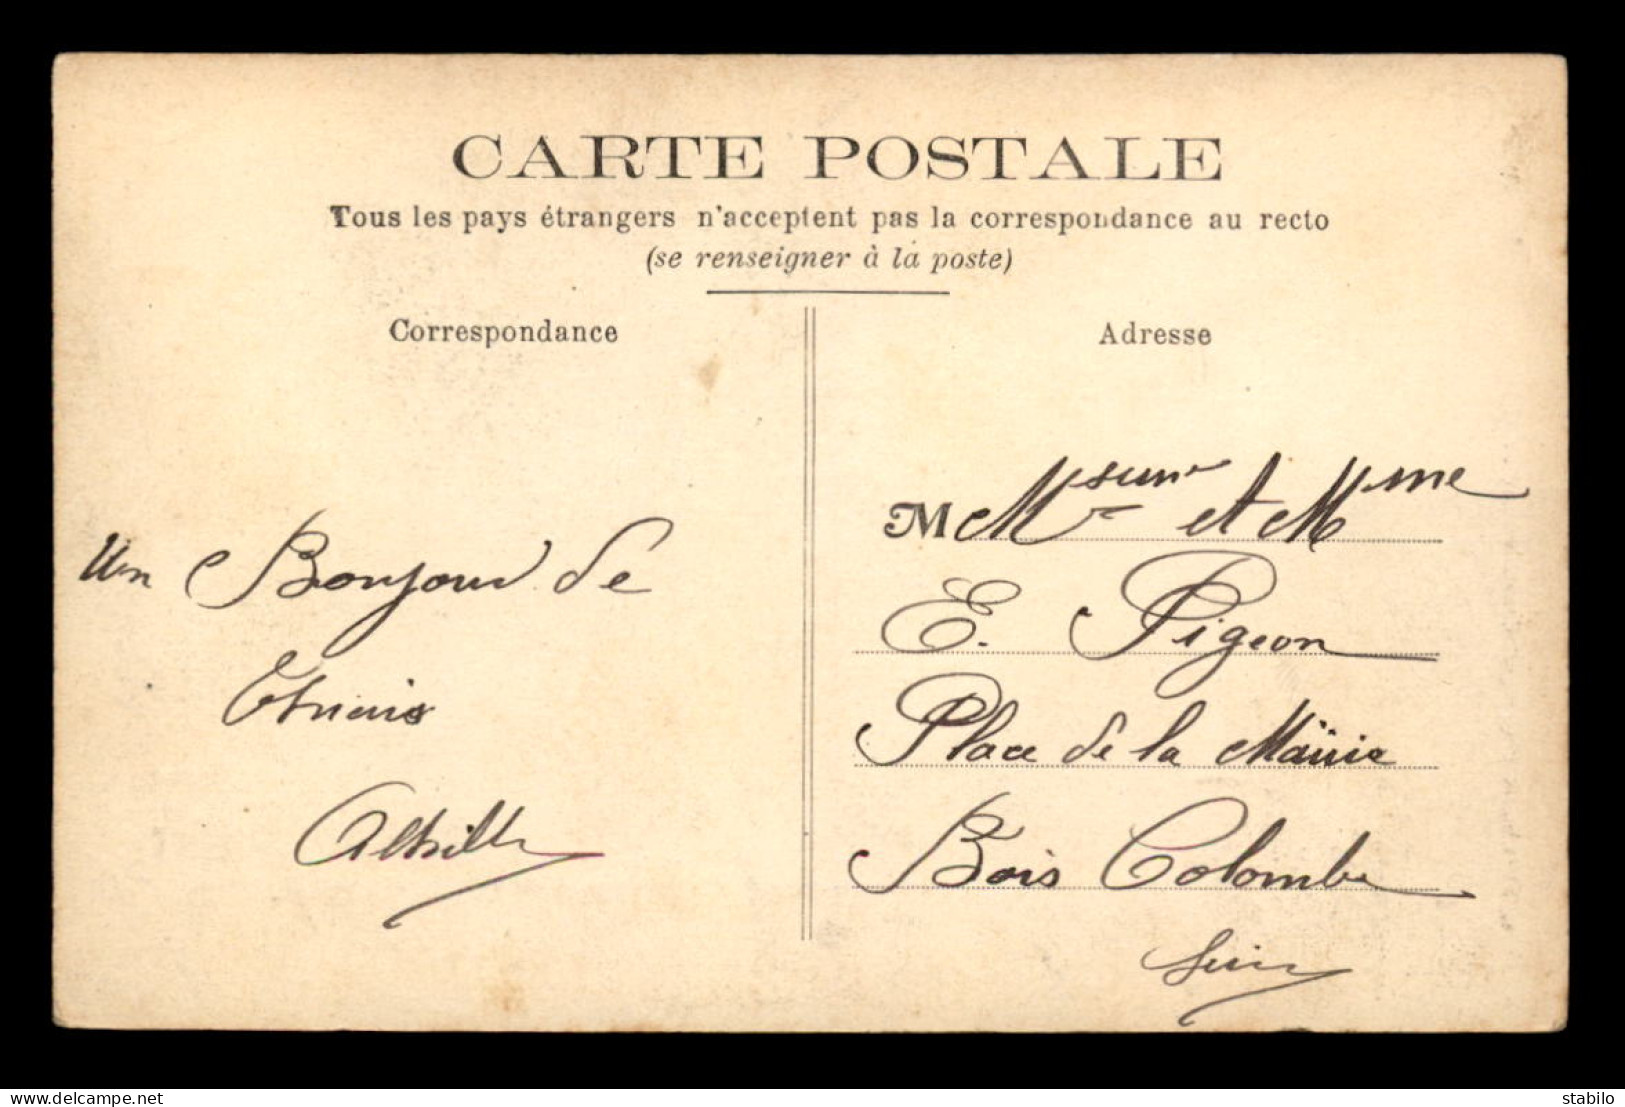 CARTE POSTALE
Tous les pays étrangers n'acceptent pas la correspondance au recto
(se renseigner à la poste)
Correspondance
Adresse
Un Bonjour de
Achille
M Msieur et Mme
E. Pigeon
Place de la Mairie
Bois Colombe
Seine
delcampe.net
stabilo